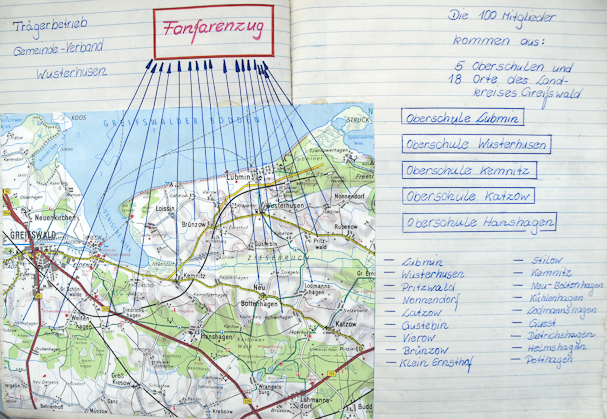 Trägerbetrieb
Gemeinde-Verband
Wusterhusen
Fanfarenzug
Die 100 Mitglieder
kommen aus:
5 Oberschulen und
18 Orte des Land-
kreises Greifswald
Oberschule Lubmin
Oberschule Wusterhusen
Oberschule Kemnitz
Oberschule Katzow
Oberschule Hanshagen
– Lubmin
– Wusterhusen
– Pritzwald
– Nonnendorf
– Latzow
– Gustebin
– Vierow
– Brünzow
– Klein Ernsthof
– Stilow
– Kemnitz
– Neu-Boltenhagen
– Kühlenhagen
– Lodmannshagen
– Guest
– Dietrichshagen
– Helmshagen
– Potthagen
GREIFSWALDER BODDEN
KOOS
STRUCK
Lubmin
Neuenkirchen
Loissin
Wusterhusen
Nonnendorf
Rubenow
Brünzow
GREIFSWALD
Gustebin
Pritz-
wald
ZIESEBRUCH
Kemnitz
Neu
Boltenhagen
Lodmanns-
hagen
Hanshagen
Katzow
Groß
Kiesow
Wrangels-
burg
Lühmanns-
dorf
Müssow
Krebsow
Behrenhoff